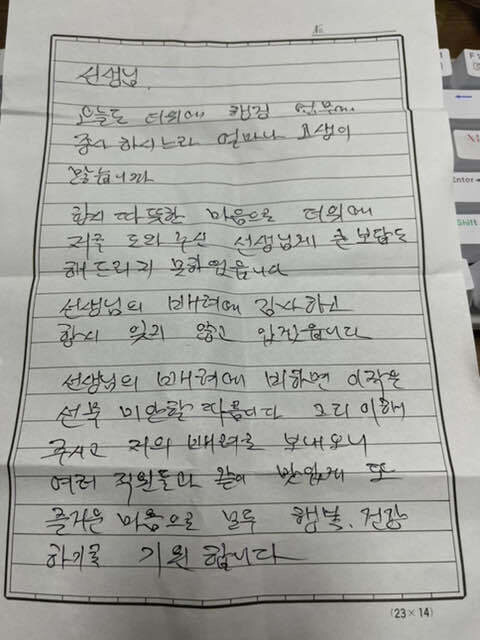 No
선생님.
오늘도 더위에 행정 업무에
종사 하시느라 얼마나 고생이
많습니까
항시 따뜻한 마음으로 더위에
저를 도와 주신 선생님께 큰 보답도
해 드리지 못하였읍니다
선생님의 배려에 감사하고
항시 잊지 않고 있겠읍니다
선생님의 배려에 비하면 이 작은
선물 미안할 따름이다 그리 이해
주시고 저의 배려를 보내오니
여러 직원들과 같이 맛있게 또
즐거운 마음으로 모두 행복, 건강
하기를 기원 합니다
(23×14)
Enter
Shift